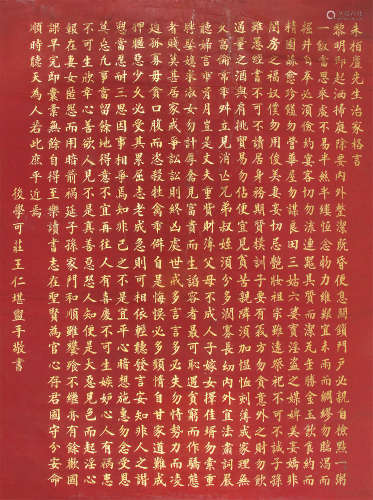 朱栢廬先生治家格言
黎明即起洒掃庭除要內外整潔既昏便息關鎖門戶必親自檢點一粥
一飯當思來處不易半絲半縷恒念物力維艱宜未雨而綢繆勿臨渴而
掘井自奉必須儉約宴客切勿流連器具質而潔瓦缶勝金玉飲食約而
精園蔬愈珍饈勿營華屋勿謀良田三姑六婆實淫盜之媒婢美妾嬌非
閨房之福奴僕勿用俊美妻妾切忌艷妝祖宗雖遠祭祀不可不誠子孫
雖愚經書不可不讀居身務期質樸訓子要有義方勿貪意外之財勿飲
過量之酒與肩挑貿易勿佔便宜見貧苦親鄰須加溫恤刻薄成家理無
久享倫常乖舛立見消亡兄弟叔姪須分多潤寡長幼內外宜法肅詞嚴
聽婦言乖骨肉豈是丈夫重貲財薄父母不成人子嫁女擇佳壻勿索重
聘娶媳求淑女勿計厚奩見富貴而生諂容者最可恥遇貧窮而作驕態
者賤莫甚居家戒爭訟訟則終凶處世戒多言言多必失勿恃勢力而凌
逼孤寡毋貪口腹而恣殺牲禽乖僻自是悔悞必多頹惰自甘家道難成
狎暱惡少久必受其累屈志老成急則可相依輕聽發言安知非人之譖
愬當忍耐三思因事相爭焉知非己之不是宜平心暗想施惠勿念受恩
莫忘凡事當留餘地得意不宜再往人有喜慶不可生嫉妒心人有禍患
不可生欣幸心善欲人見不是真善惡恐人知便是大惡見色而起淫心
報在妻女匿怨而用暗箭禍延子孫家門和順雖饔飧不繼亦有餘歡國
課早完即囊橐無餘自得至樂讀書志在聖賢為官心存君國守分安命
順時聽天為人若此庶乎近焉
後學可莊王仁堪盥手敬書